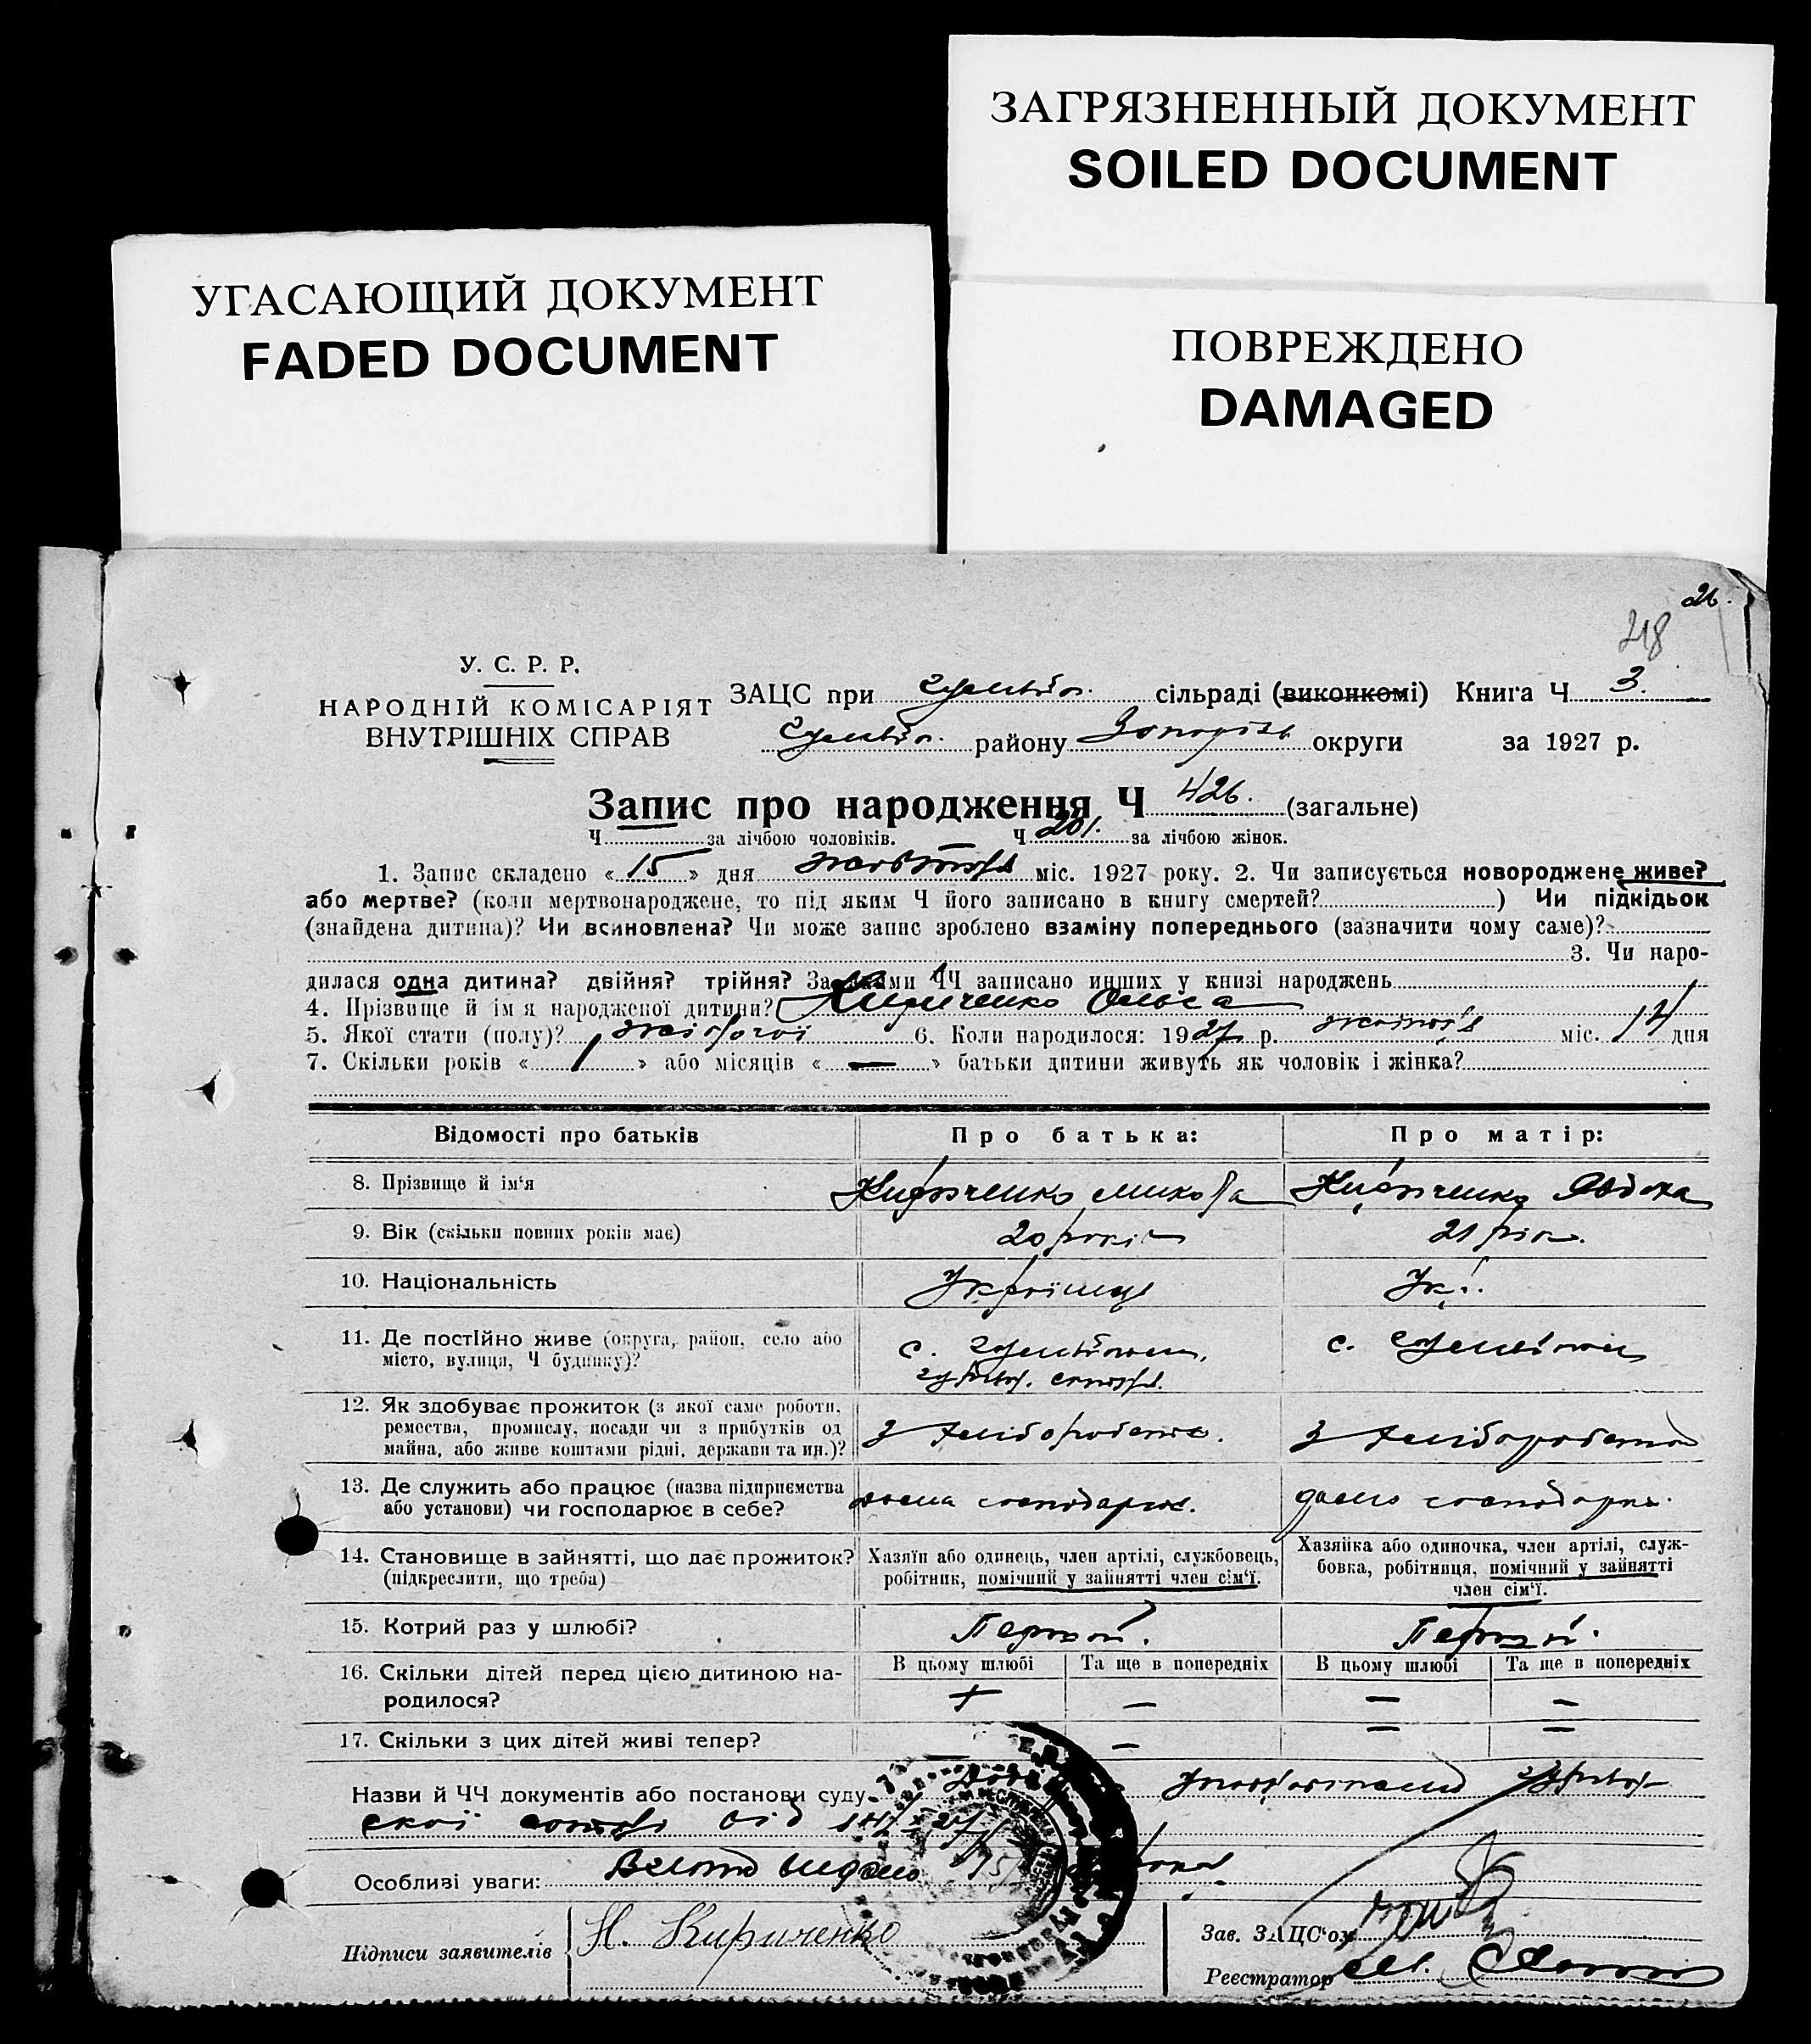 ЗАГРЯЗНЕННЫЙ ДОКУМЕНТ
SOILED DOCUMENT
УГАСАЮЩИЙ ДОКУМЕНТ
FADED DOCUMENT
ПОВРЕЖДЕНО
DAMAGED
26.
У. С. Р. Р.
НАРОДНІЙ КОМІСАРІЯТ
ВНУТРІШНІХ СПРАВ
ЗАЦС при сільраді (виконкомі) Книга Ч 3.
району округи за 1927 р.
Запис про народження Ч 426. (загальне)
Ч за лічбою чоловіків. Ч 201. за лічбою жінок.
1. Запис складено « 15 » дня жовтня міс. 1927 року. 2. Чи записується новороджене живе?
або мертве? (коли мертвонароджене, то під яким Ч його записано в книгу смертей? ) Чи підкідьок
(знайдена дитина)? Чи всиновлена? Чи може запис зроблено взаміну попереднього (зазначити чому саме)?
3. Чи наро-
дилася одна дитина? двійня? трійня? За якими ЧЧ записано инших у книзі народжень
4. Прізвище й ім'я народженої дитини? Кириченко Ольга
5. Якої стати (полу)? жіночої 6. Коли народилося: 1927 р. жовтня міс. 14 дня
7. Скільки років « 1 » або місяців « — » батьки дитини живуть як чоловік і жінка?
Відомості про батьків Про батька: Про матір:
8. Прізвище й ім'я Кириченко Микола Кириченко Явдоха
9. Вік (скільки повних років має) 20 років 21 рік.
10. Національність Українець Укр.
11. Де постійно живе (округа, район, село або
місто, вулиця, Ч будинку)? с. с.
12. Як здобуває прожиток (з якої саме роботи,
ремества, промислу, посади чи з прибутків од
майна, або живе коштами рідні, держави та ин.)? З хліборобства. З хліборобства
13. Де служить або працює (назва підприємства
або установи) чи господарює в себе? дома господарює. дома господарює.
14. Становище в зайнятті, що дає прожиток?
(підкреслити, що треба)
Хазяїн або одинець, член артілі, службовець,
робітник, помічний у зайнятті член сім'ї.
Хазяйка або одиночка, член артілі, служ-
бовка, робітниця, помічний у зайнятті
член сім'ї.
15. Котрий раз у шлюбі? Первый. Первый.
16. Скільки дітей перед цією дитиною на-
родилося?
В цьому шлюбі Та ще в попередніх В цьому шлюбі Та ще в попередніх
+ — — —
17. Скільки з цих дітей живі тепер? — — — —
Назви й ЧЧ документів або постанови суду
від
Особливі уваги: видано
Підписи заявителів Н. Кириченко
Зав. ЗАЦС'ом
Реєстратор